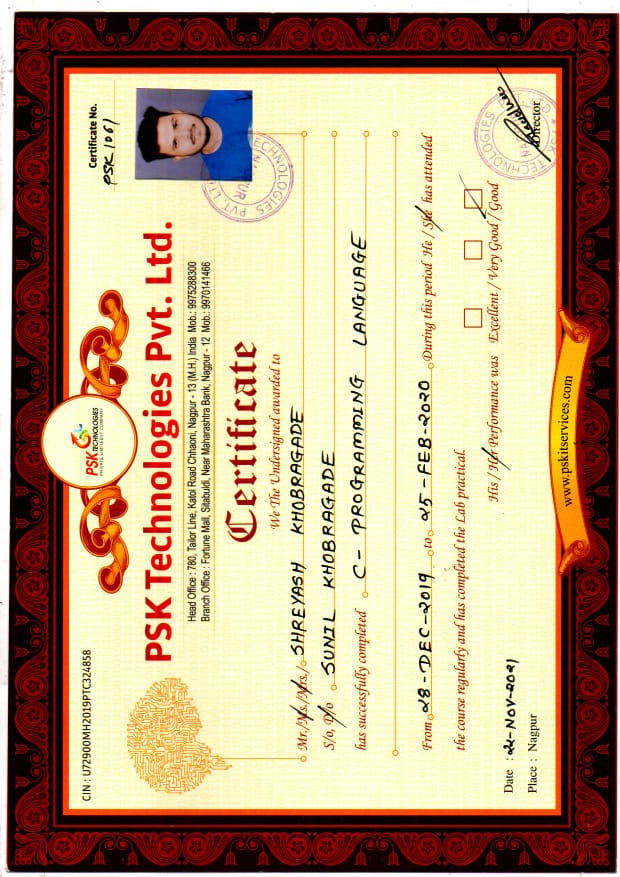 CIN : U72900MH2019PTC324858
PSK TECHNOLOGIES
PRIVATE LIMITED IT COMPANY
Certificate No.
PSK 1061
PSK Technologies Pvt. Ltd.
Head Office : 780, Tailor Line, Katol Road Chhaoni, Nagpur - 13 (M.H.) India Mob.: 9975288300
Branch Office : Fortune Mall, Sitabuldi, Near Maharashtra Bank, Nagpur - 12 Mob.: 9970141466
TECHNOLOGIES PVT. LTD
Certificate
We The Undersigned awarded to
Mr./Ms./Mrs./ SHREYASH KHOBRAGADE
S/o, D/o SUNIL KHOBRAGADE
has successfully completed C- PROGRAMMING LANGUAGE
From 28-DEC-2019 to 25-FEB-2020 During this period He / She has attended
the course regularly and has completed the Lab practical.
His / Her Performance was Excellent / Very Good / Good
Date : 22-NOV-2021
Place : Nagpur
TECHNOLOGIES
Director
www.pskitservices.com